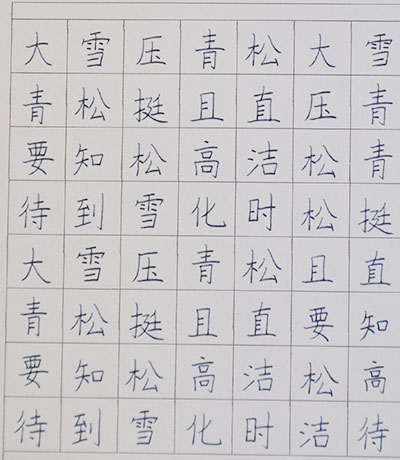 大雪压青松大雪
青松挺且直压青
要知松高洁松青
待到雪化时松挺
大雪压青松且直
青松挺且直要知
要知松高洁松高
待到雪化时洁待